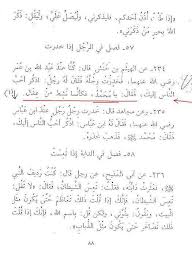 «إذا طَنَّتْ أُذُنُ أَحَدِكُمْ، فَلْيَذْكُرْنِي، وَلْيُصَلِّ عَلَيَّ، وَلْيَقُلْ: ذَكَرَ
اللَّهُ بِخَيْرٍ مَنْ ذَكَرَنِي».
٥٧ـ فصل في الرَّجُل إذا خدرت
٢٣٤ـ عن الهيثم بن حنش قال: كُنَّا عند عبد الله بن عمر
رضي الله عنهما، فَخَدِرَتْ رِجْلُهُ، فَقَالَ لَهُ رَجُلٌ: اذكر أَحَبَّ
النَّاسِ إِلَيْكَ، فَقَالَ: يَا مُحَمَّدُ، فَكَأَنَّمَا نُشِطَ مِنْ عِقَالٍ.
٢٣٥ـ وعن مجاهد قال: خَدِرَتْ رِجْلُ رَجُلٍ عند ابن عبَّاس
رضي الله عنهما، فَقَالَ لَهُ ابنُ عَبَّاسٍ: اذكر أَحَبَّ النَّاسِ إِلَيْكَ،
فَقَالَ: مُحَمَّدٌ ﷺ، فَذَهَبَ خَدَرُهُ.
٥٨ـ فصل في الدابة إذا تعست
٢٣٦ـ عن أبي المليح عن رجل قال: كُنْتُ رَدِيفَ النَّبِيِّ
ﷺ، فَعَثَرَتْ دَابَّتُهُ، فَقُلْتُ: تَعِسَ الشَّيْطَانُ، فَقَالَ: «لَا تَقُلْ:
تَعِسَ الشَّيْطَانُ، فَإِنَّكَ إِذَا قُلْتَ ذَلِكَ، تَعَاظَمَ حَتَّى يَكُونَ مِثْلَ
البَيْتِ، وَيَقُولُ: بِقُوَّتِي، وَلَكِنْ قُلْ: بِسْمِ اللَّهِ، فَإِنَّكَ إِذَا قُلْتَ
ذَلِكَ، تَصَاغَرَ حَتَّى يَكُونَ مِثْلَ الذُّبَابِ».
٨٨